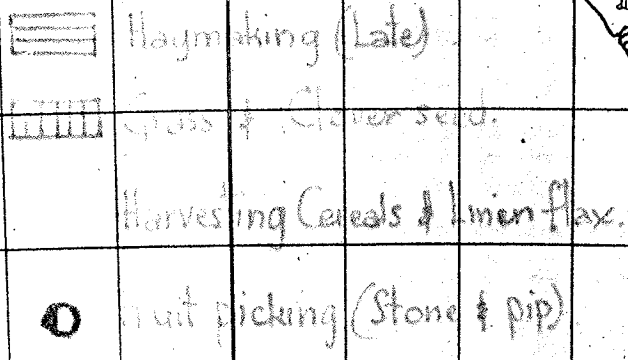 Haymaking (Late)
Grass & Clover seed.
Harvesting Cereals & Linen flax.
Fruit picking (Stone & pip)